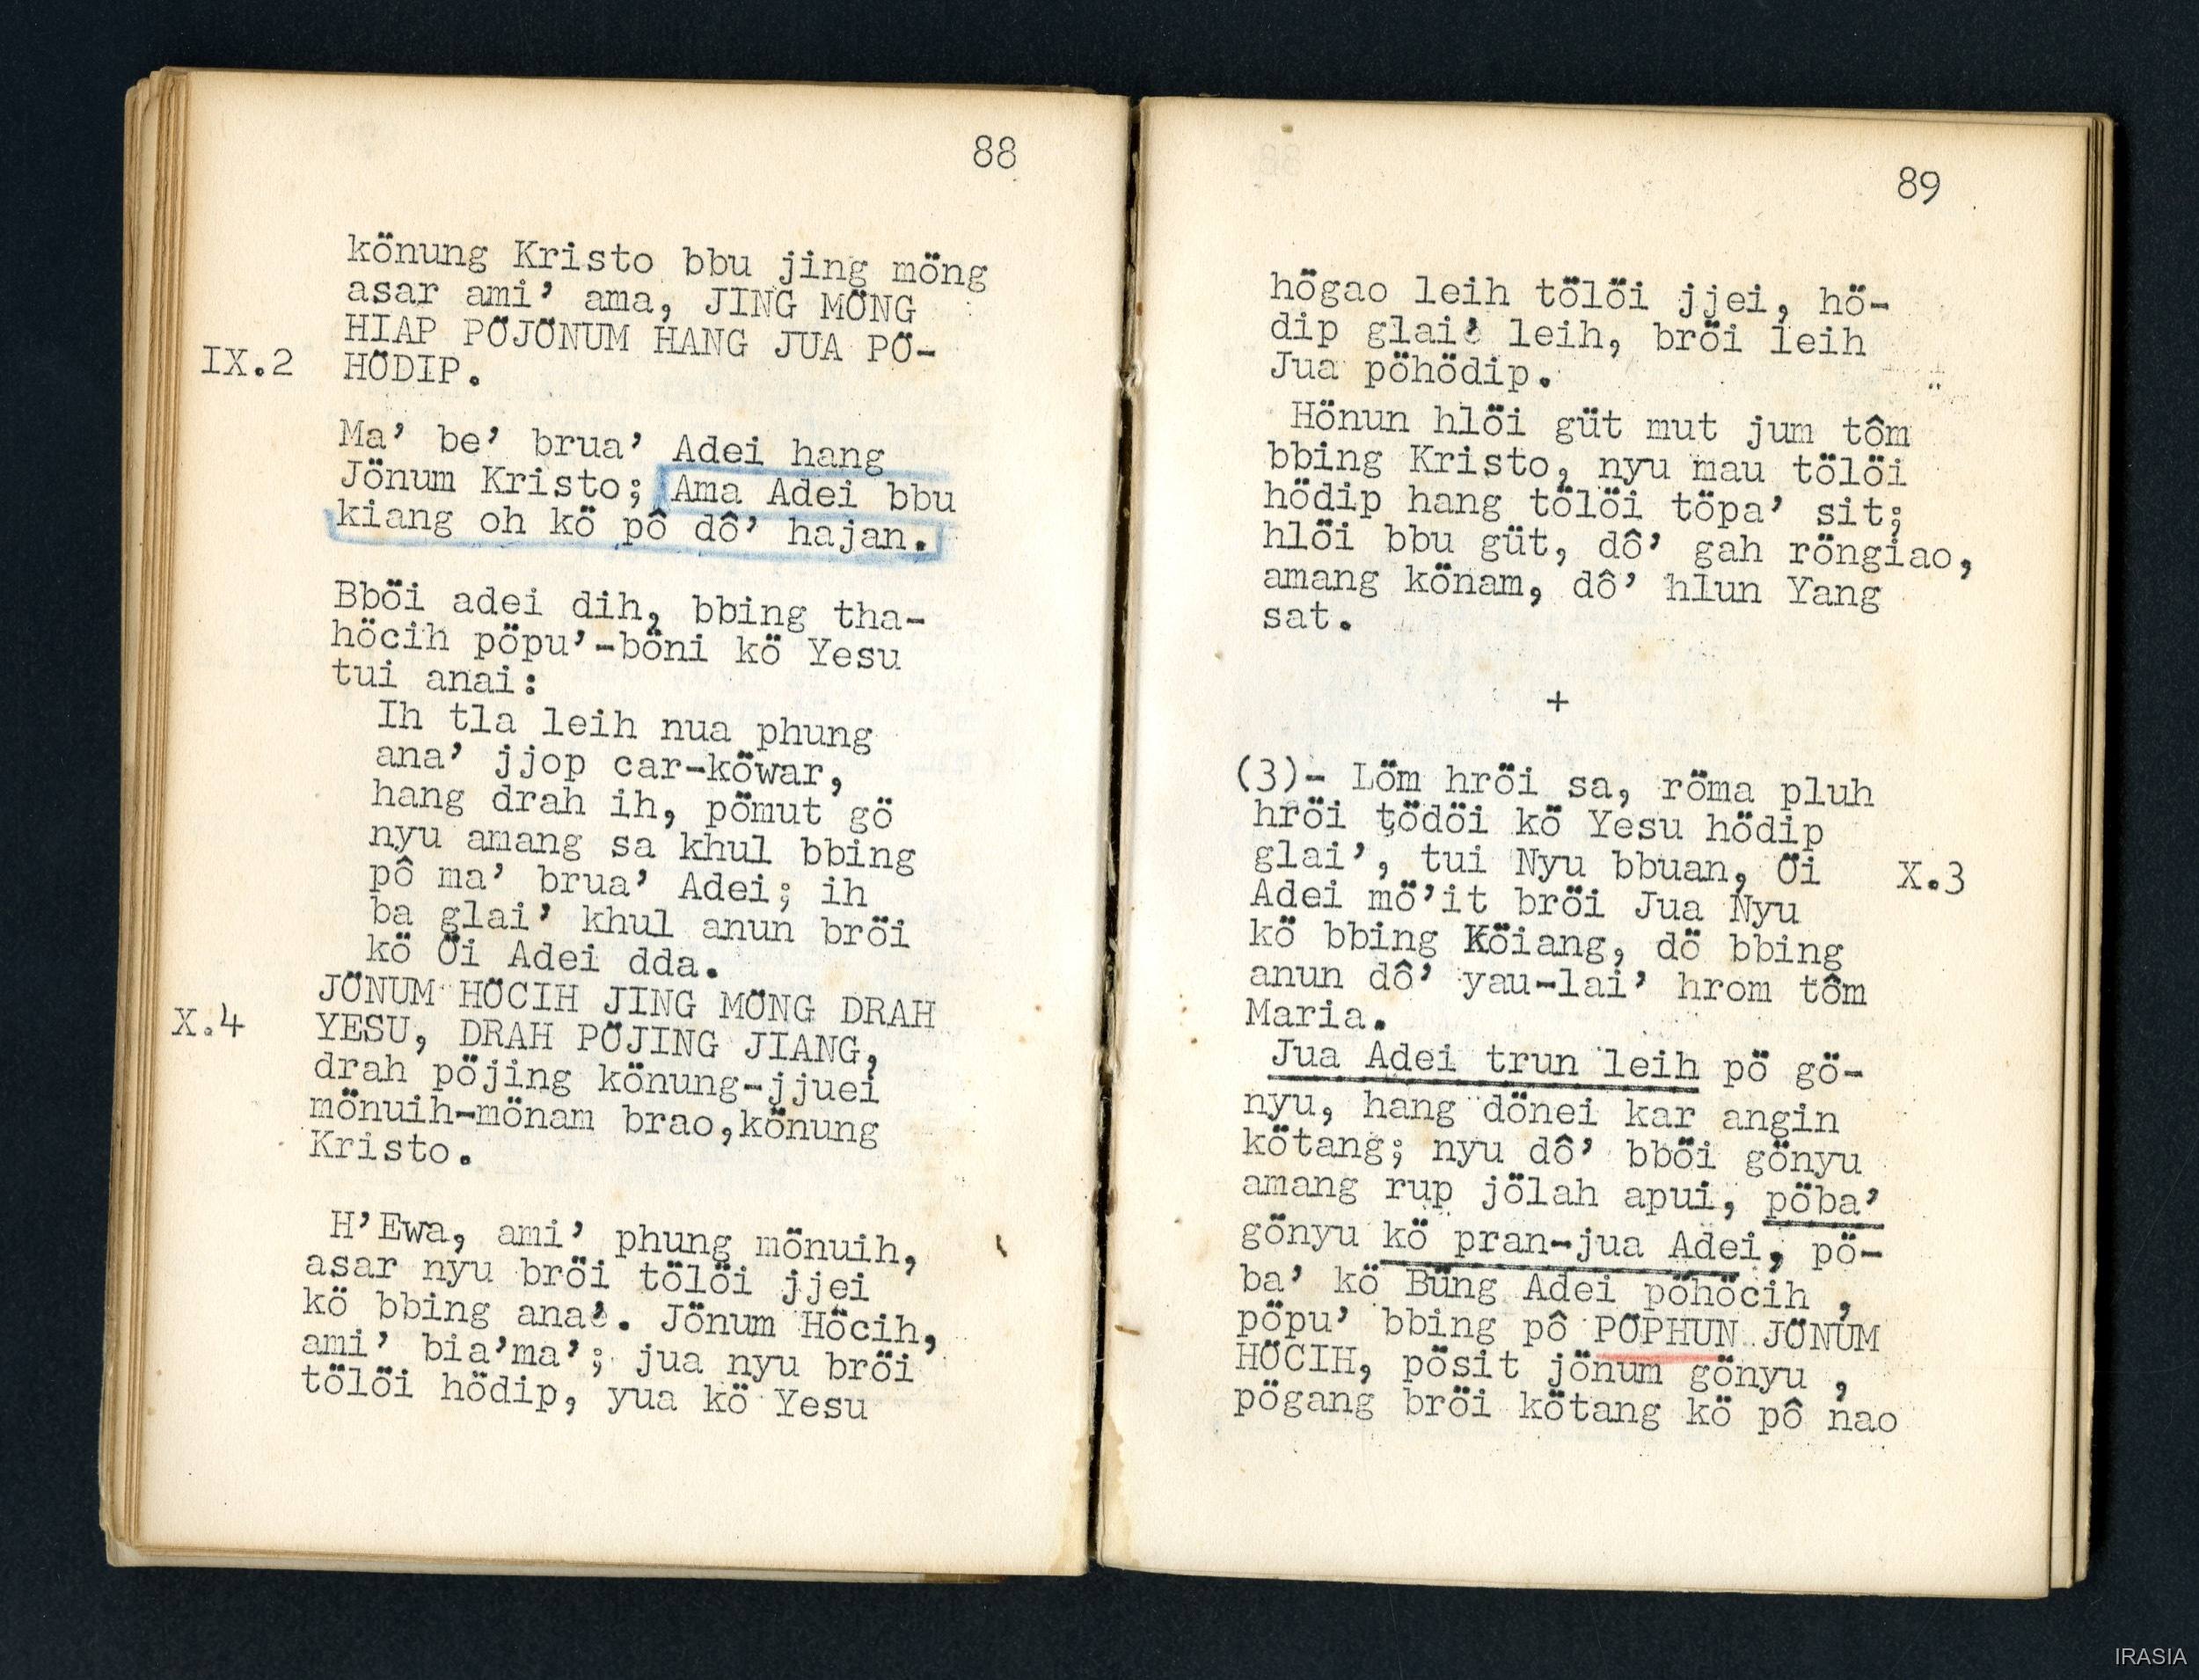 88
könung Kristo bbu jing möng
asar ami’ ama, JING MÖNG
HIAP PÖJÖNUM HANG JUA PÖ-
IX.2 HÖDIP.
Ma’ be’ brua’ Adei hang
Jönum Kristo; Ama Adei bbu
kiang oh kö pô dô’ hajan.
Bböi adei dih, bbing tha-
höcih pöpu’-böni kö Yesu
tui anai:
Ih tla leih nua phung
ana’ jjop car-köwar,
hang drah ih, pömut gö
nyu amang sa khul bbing
pô ma’ brua’ Adei; ih
ba glai’ khul anun bröi
kö Öi Adei dda.
JÖNUM HÖCIH JING MÖNG DRAH
X.4 YESU, DRAH PÖJING JIANG,
drah pöjing könung-jjuei
mönuih-mönam brao,könung
Kristo.
H’Ewa, ami’ phung mönuih,
asar nyu bröi tölöi jjei
kö bbing ana’. Jönum Höcih,
ami’ bia’ma’; jua nyu bröi
tölöi hödip, yua kö Yesu
89
högao leih tölöi jjei, hö-
dip glai’ leih, bröi leih
Jua pöhödip.
Hönun hlöi güt mut jum tôm
bbing Kristo, nyu mau tölöi
hödip hang tölöi töpa’ sit;
hlöi bbu güt, dô’ gah röngiao,
amang könam, dô’ hlun Yang
sat.
+
(3)- Löm hröi sa, röma pluh
hröi tödöi kö Yesu hödip
glai’, tui Nyu bbuan, Öi X.3
Adei mö’it bröi Jua Nyu
kö bbing Köiang, dö bbing
anun dô’ yau-lai’ hrom tôm
Maria.
Jua Adei trun leih pö gö-
nyu, hang dönei kar angin
kötang; nyu dô’ bböi gönyu
amang rup jölah apui, pöba’
gönyu kö pran-jua Adei, pö-
ba’ kö Büng Adei pöhöcih ,
pöpu’ bbing pô PÖPHUN JÖNUM
HÖCIH, pösit jönum gönyu ,
pögang bröi kötang kö pô nao
IRASIA